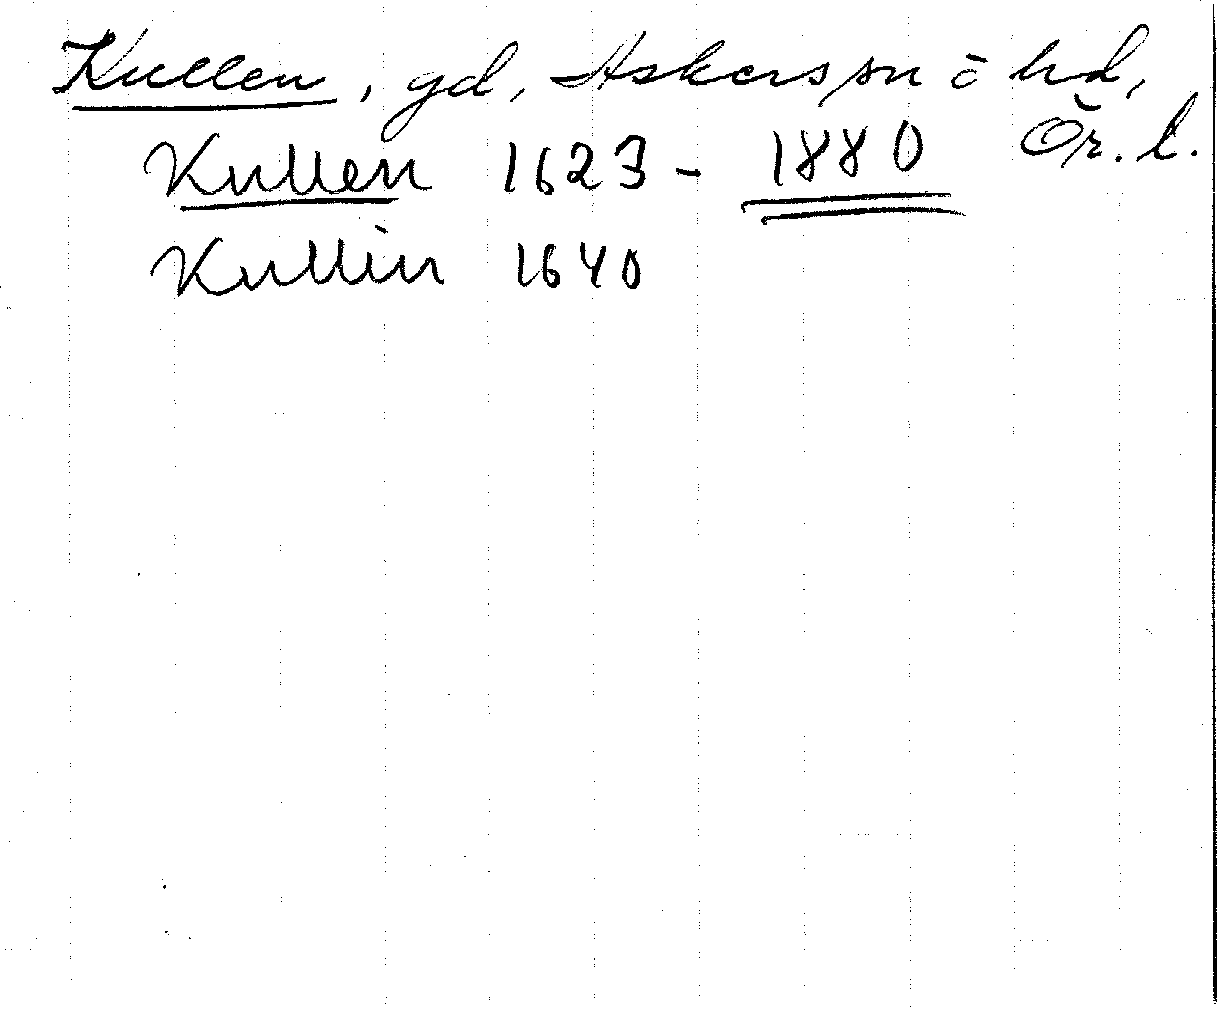 Kullen, gd, Askers sn o hd,
Ör. l.
Kullen 1623 - 1880
Kullin 1640